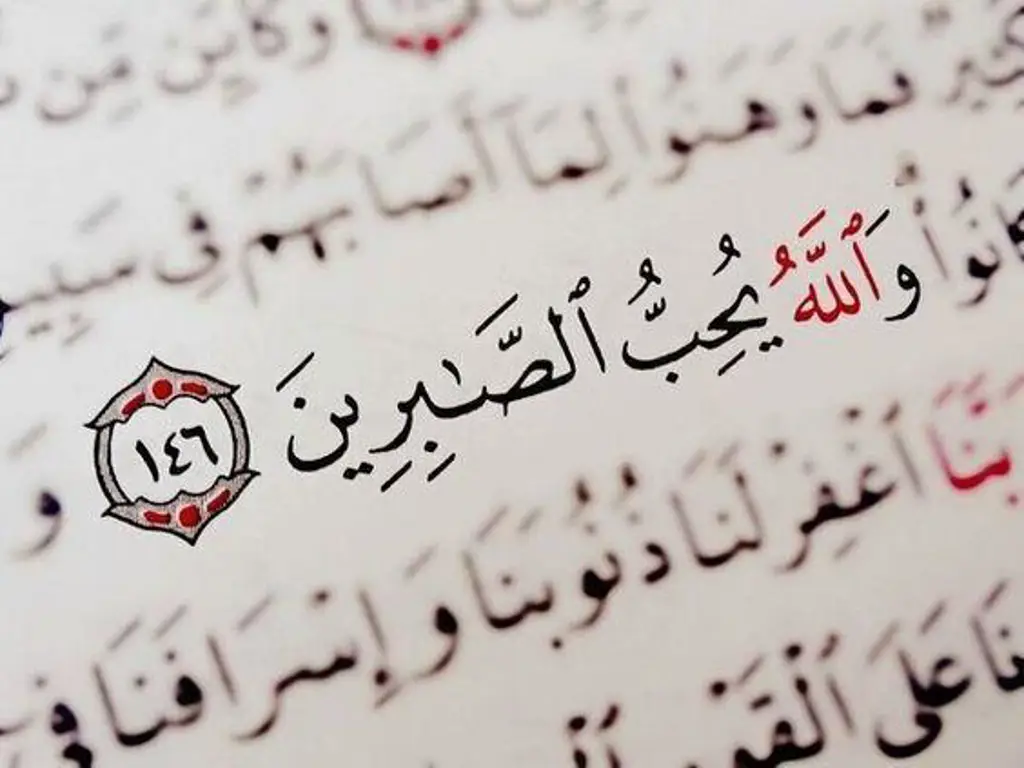 وَكَأَيِّن مِّن
كَثِيرٌ فَمَا وَهَنُوا۟ لِمَآ أَصَابَهُمْ فِى سَبِيلِ
كَانُوا۟ وَٱللَّهُ يُحِبُّ ٱلصَّـٰبِرِينَ ١٤٦ وَ
بَّنَا ٱغْفِرْ لَنَا ذُنُوبَنَا وَإِسْرَافَنَا فِىٓ
نَا عَلَى ٱلْقَوْمِ